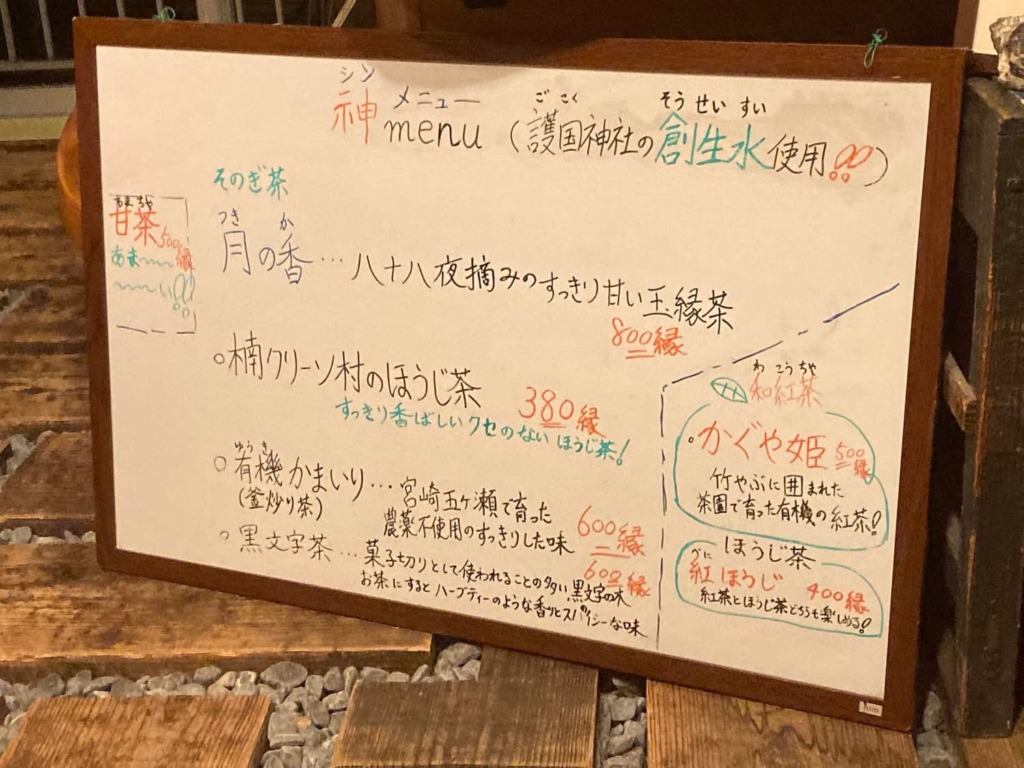 シン メニュー
神 menu (護国神社の創生水使用!!)
ごこく そうせいすい
そのぎ茶
つき か
月の香…八十八夜摘みのすっきり甘い玉緑茶
800縁
あま ちゃ
甘茶500縁
あま〜〜
〜〜い!!
○楠クリーン村のほうじ茶 380縁
すっきり香ばしいクセのない ほうじ茶!
ゆうき
○有機かまいり…宮崎五ヶ瀬で育った
(釜炒り茶) 農薬不使用のすっきりした味 600縁
○黒文字茶…菓子切りとして使われることの多い黒文字の木 600縁
お茶にするとハーブティーのような香りとスパイシーな味
わ こうちゃ
和紅茶
かぐや姫 500縁
竹やぶに囲まれた
茶園で育った有機の紅茶!
ほうじ茶
べに
紅ほうじ 400縁
紅茶とほうじ茶どちらも楽しめる!